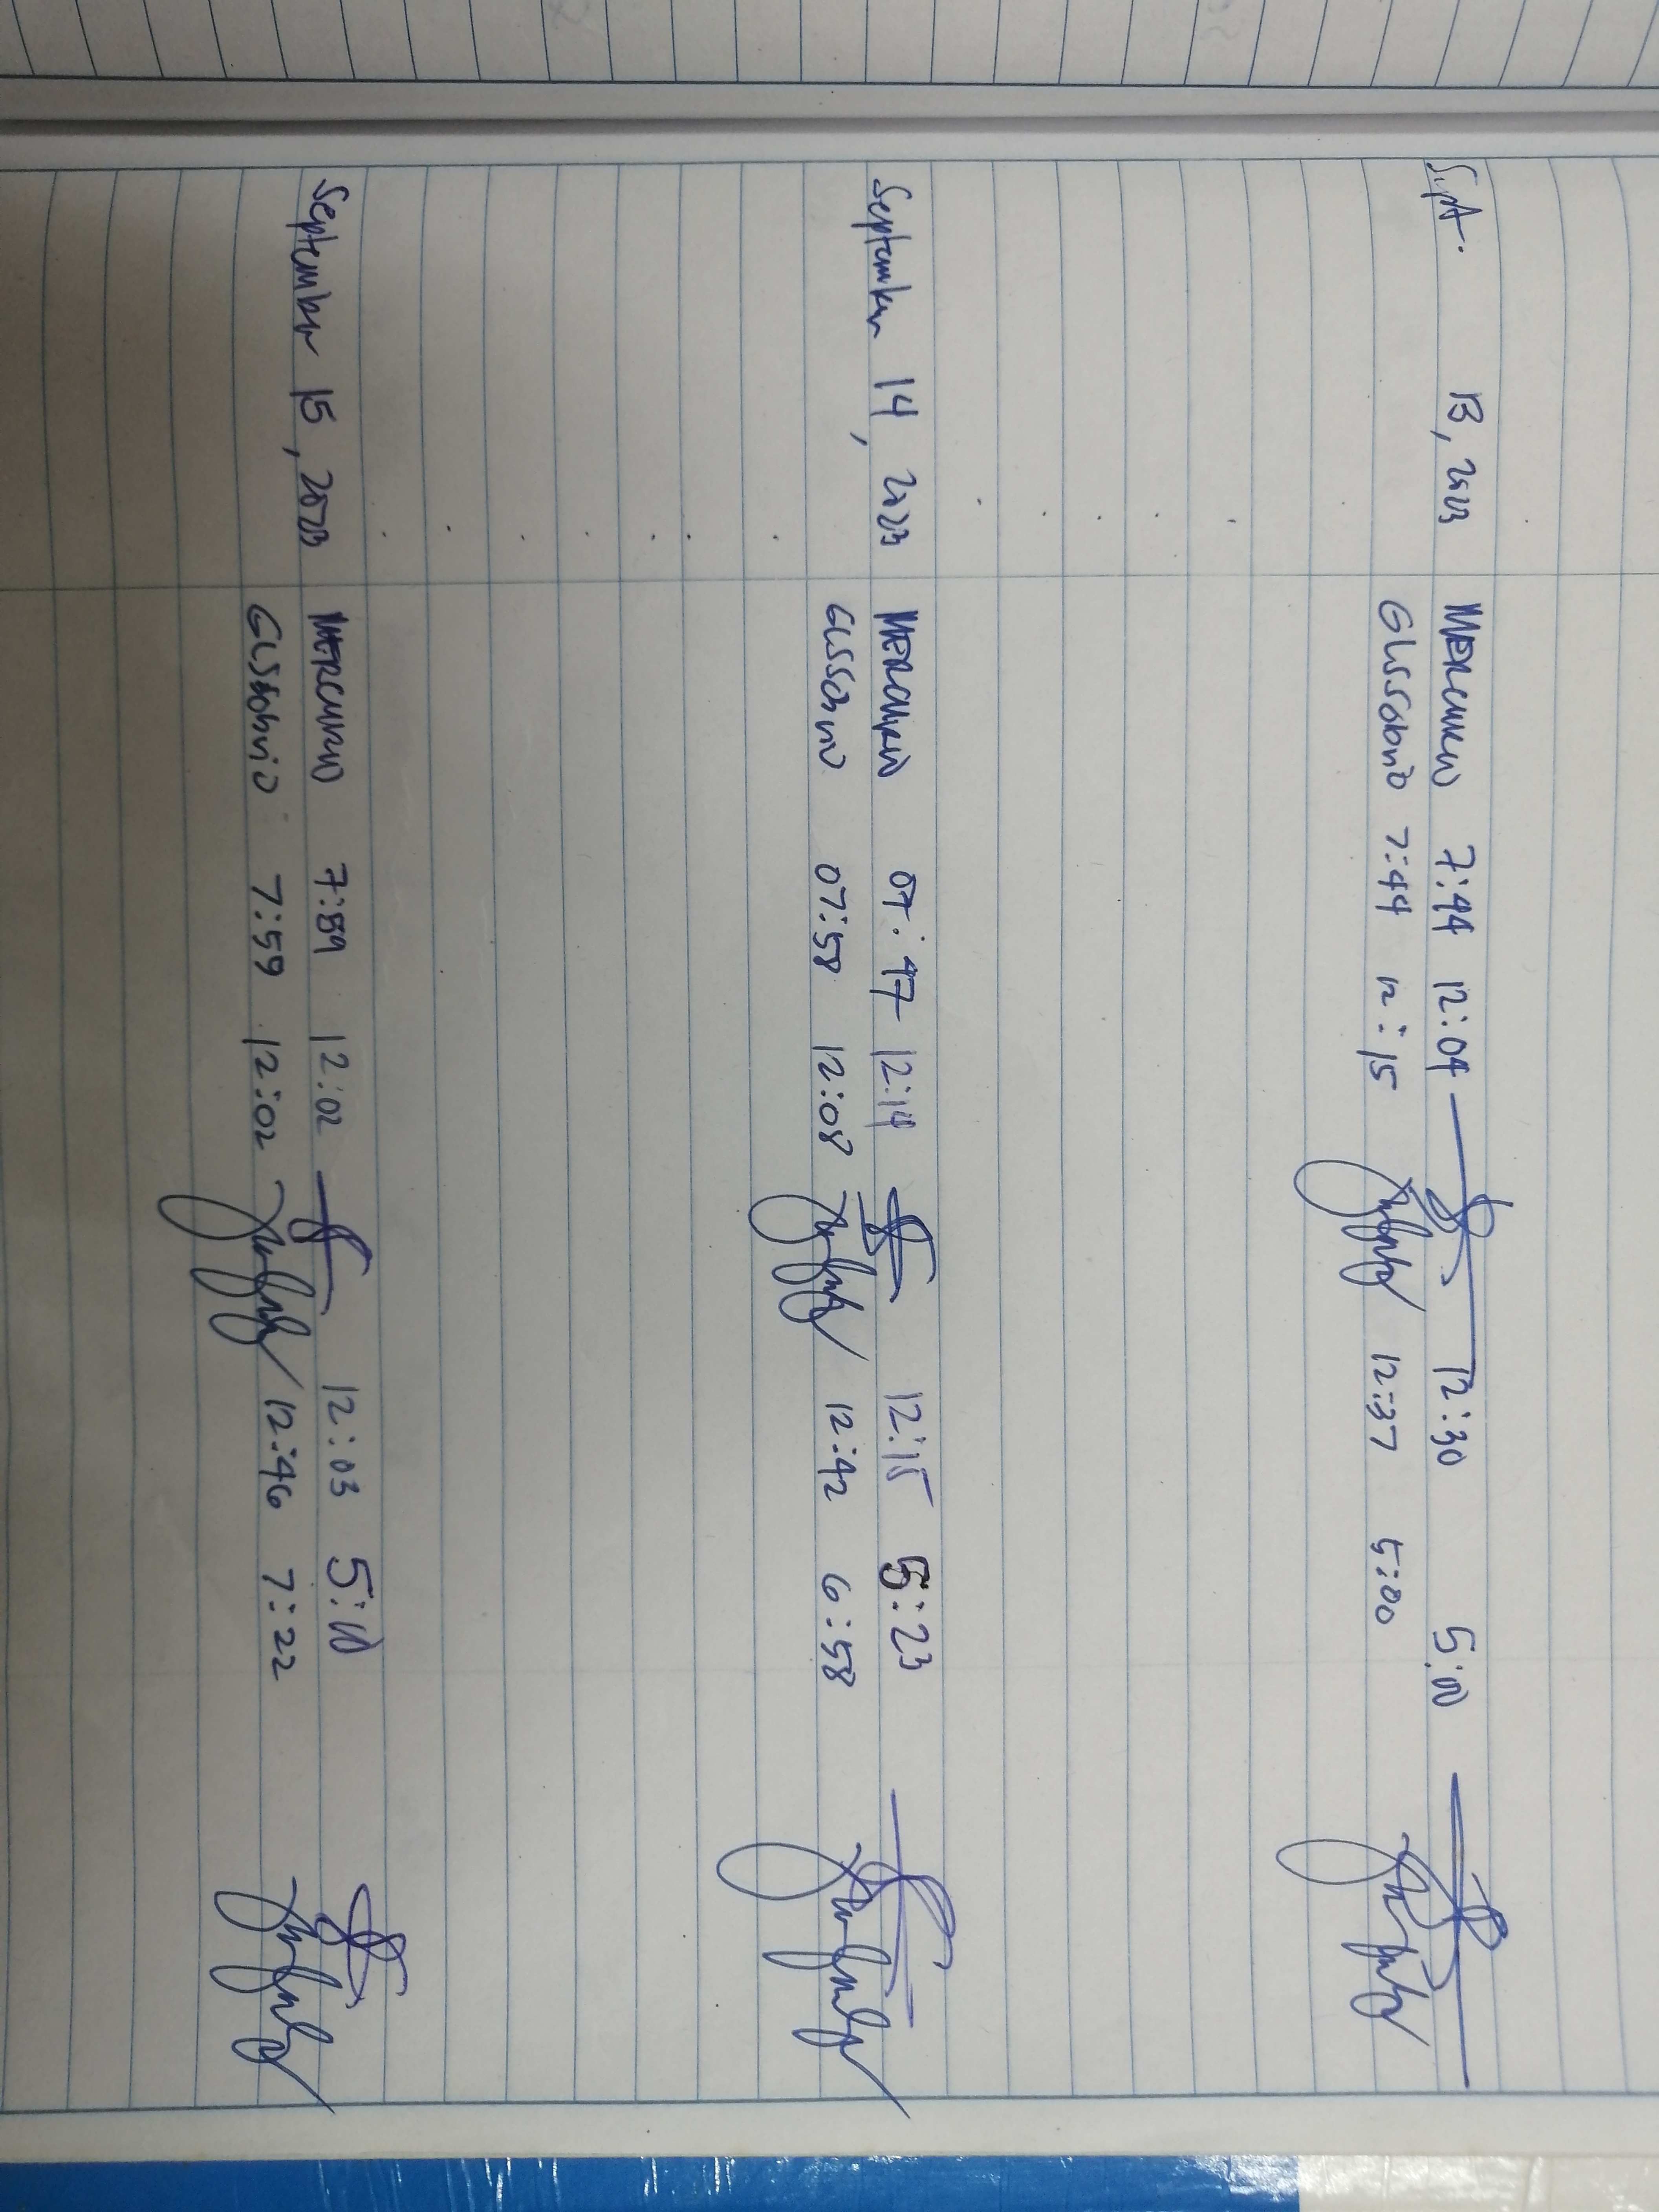 Sept. 13, 2023 MERCURIO 7:44 12:04 12:30 5:00
GLISSONIO 7:44 12:15 12:37 5:00
September 14, 2023 MERCURIO 07:47 12:14 12:15 5:23
07:58 12:08 12:42 6:58
September 15, 2023 MERCURIO 7:59 12:02 12:03 5:10
7:59 12:02 12:46 7:22